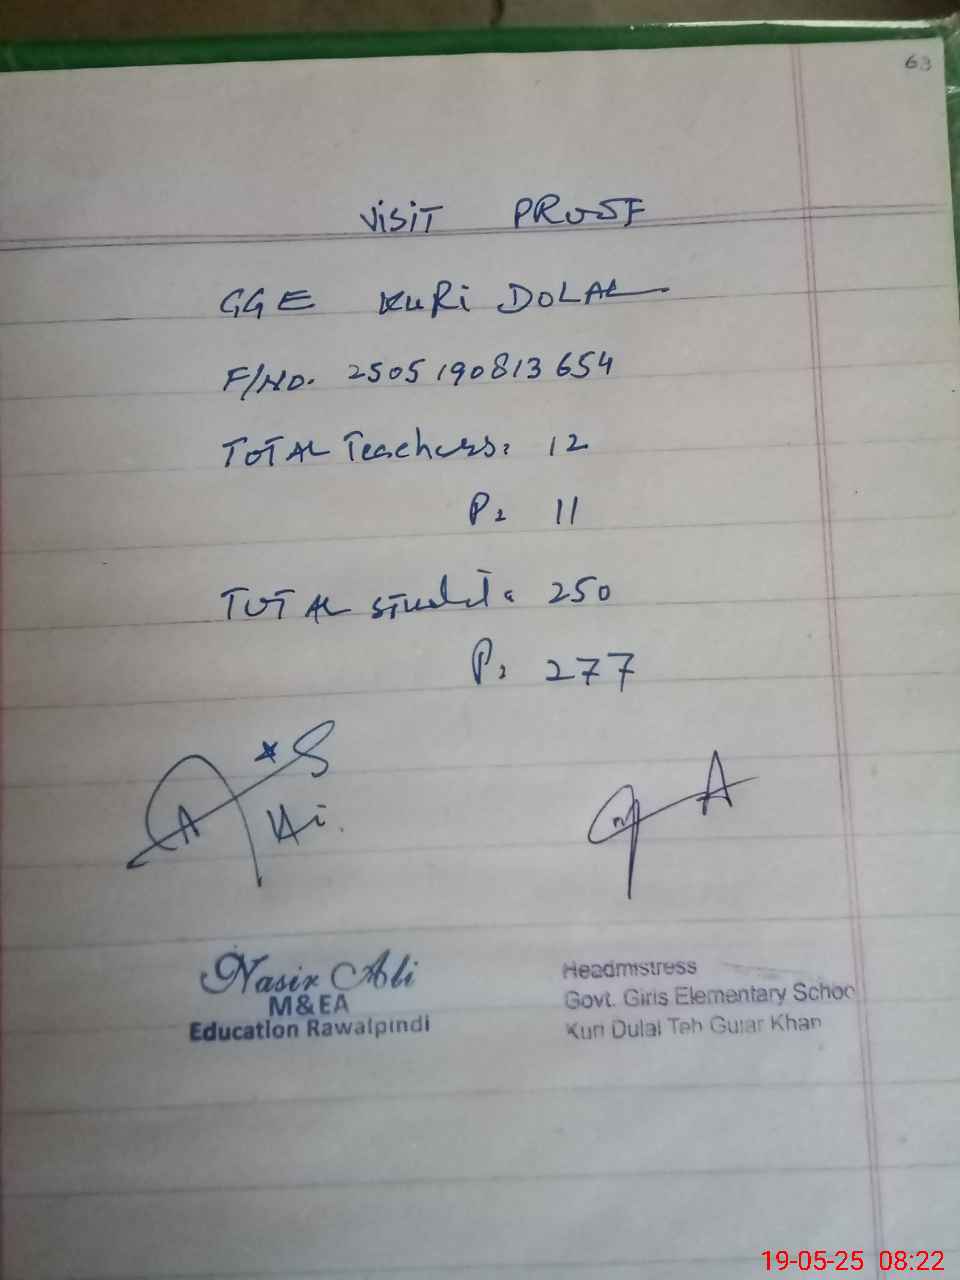 63
VISIT PROOF
GGE KURI DOLAL
F/NO. 2505190813654
TOTAL Teachers: 12
P: 11
TOTAL student: 250
P: 277
Nasir Ali
M&EA
Education Rawalpindi
Headmistress
Govt. Girls Elementary Schoo
Kuri Dulal Teh Gujar Khan
19-05-25 08:22